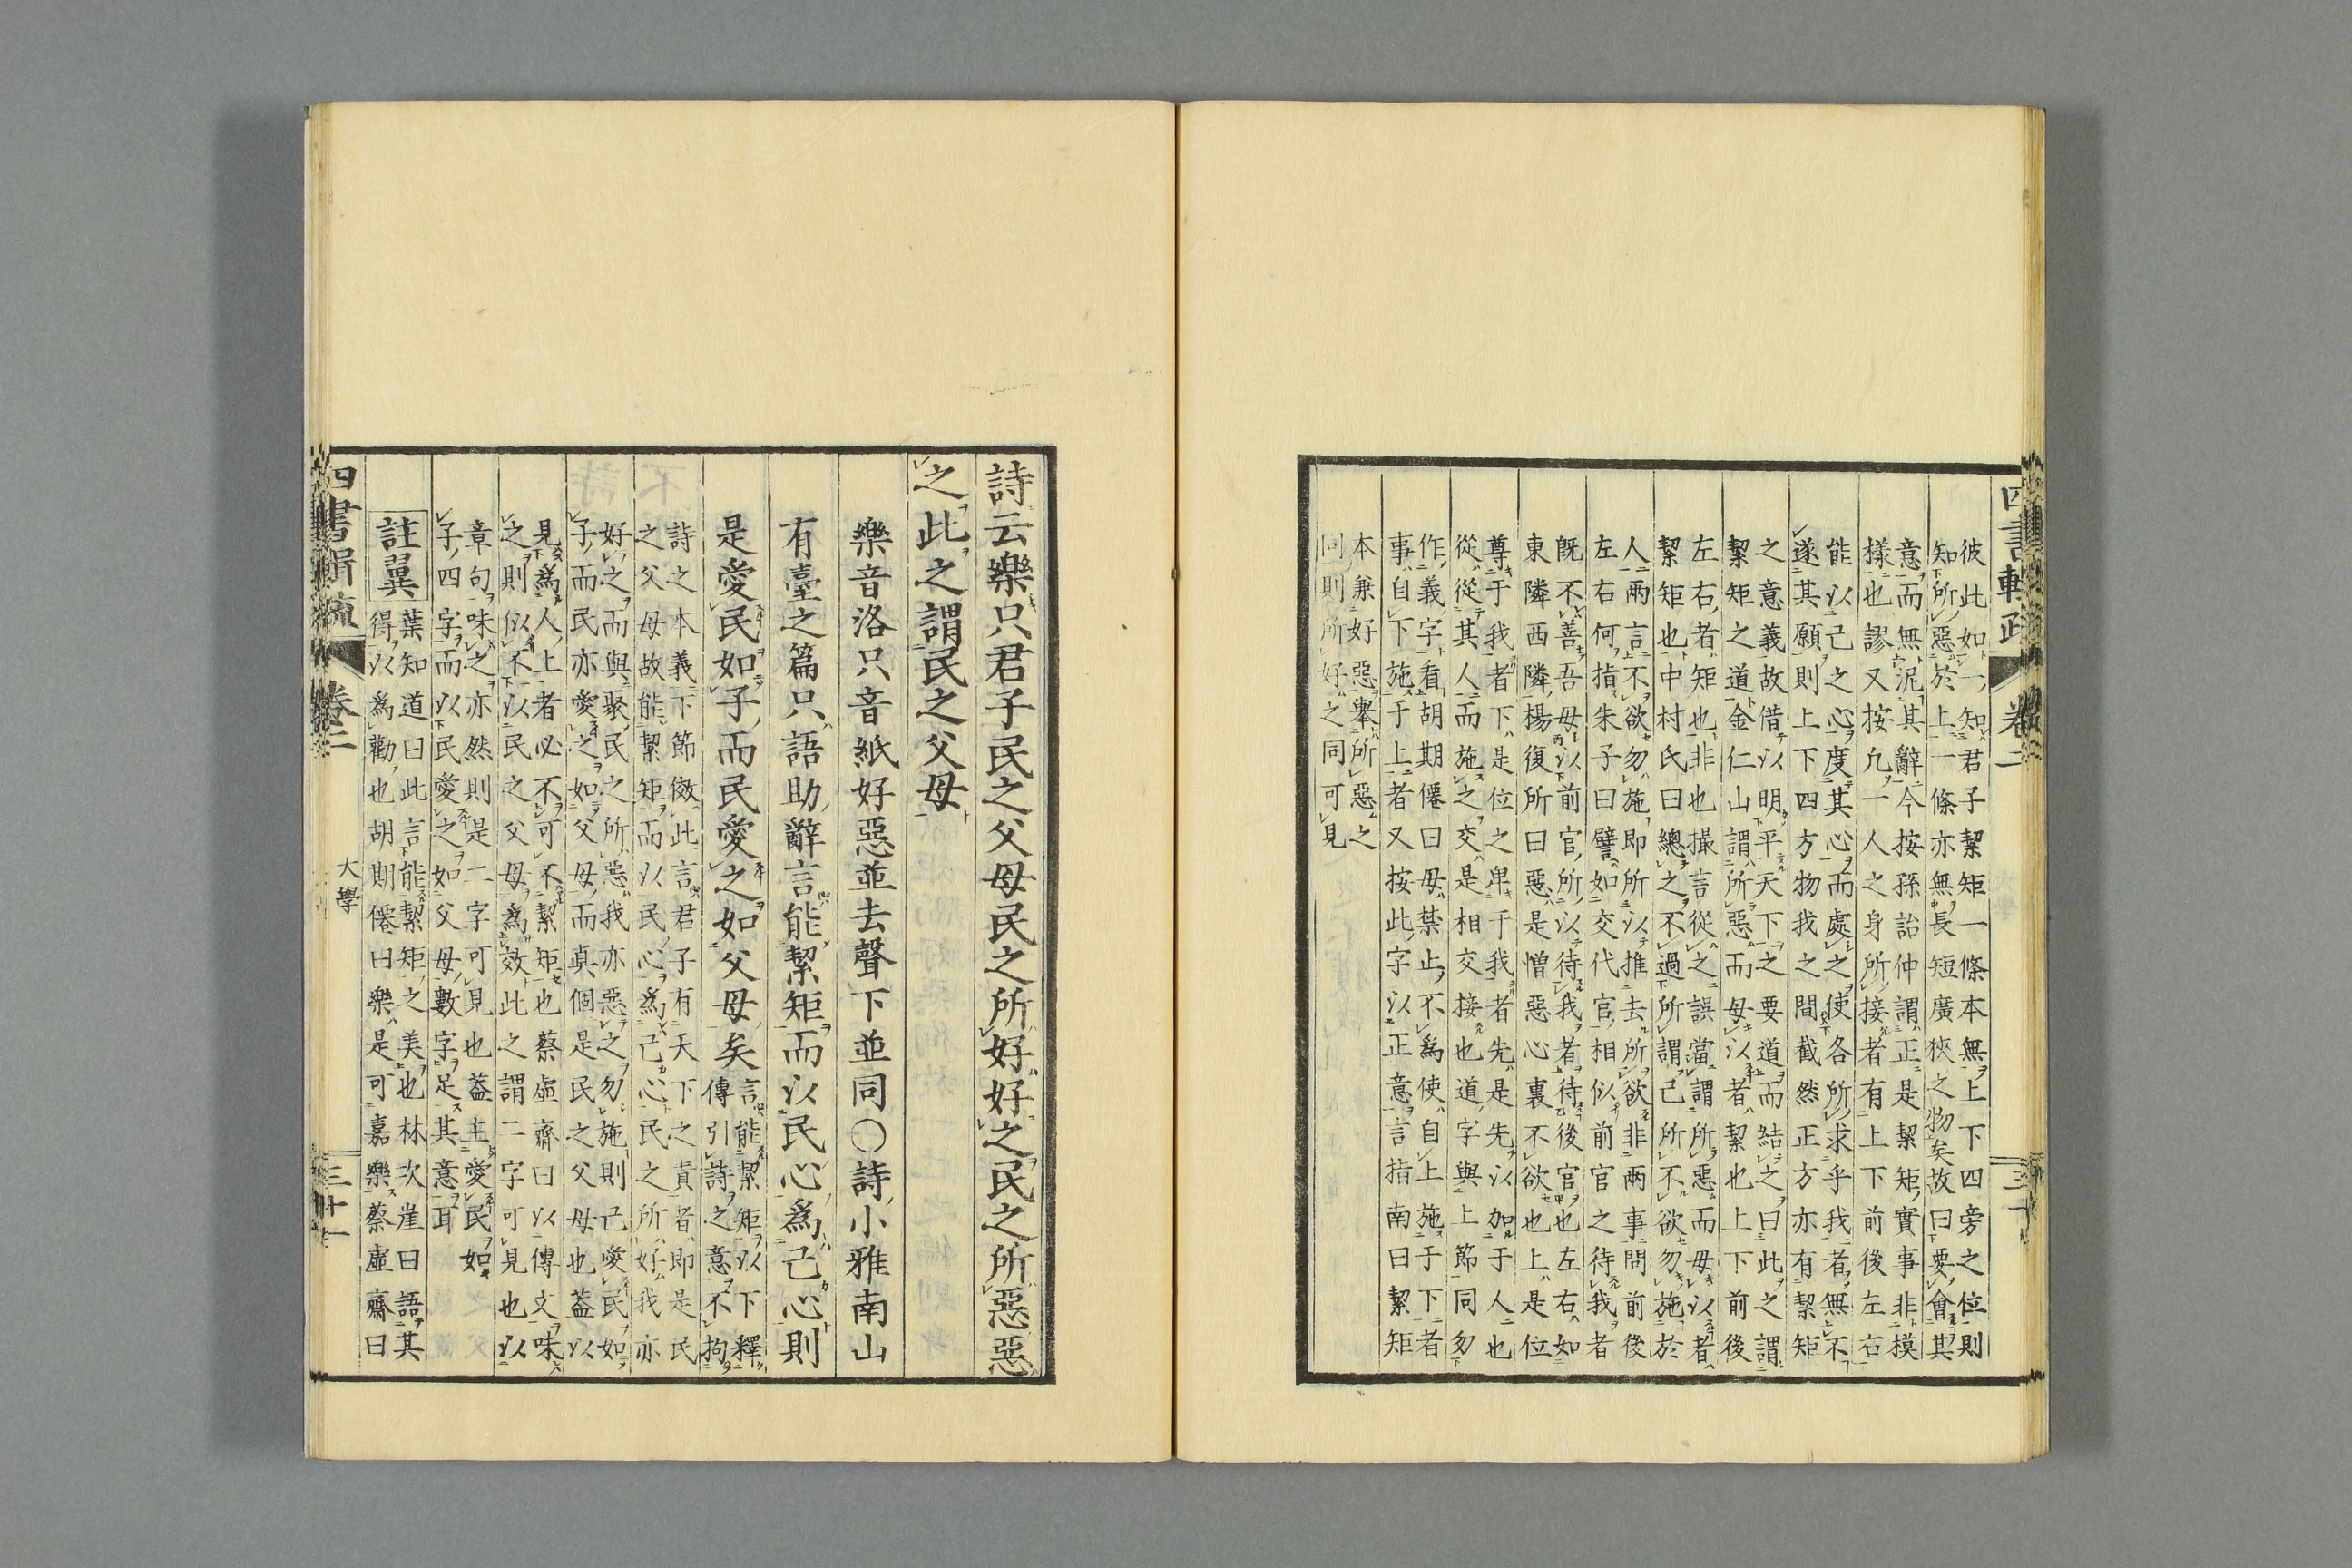 彼此如一知君子絜矩一條本無上下四旁之位則
知所惡於上一條亦無長短廣狹之物矣故曰要會其
意而無泥其辭今按孫詒仲謂正是絜矩實事非模
樣也謬又按凢一人之身所接者有上下前後左右
能以己之心度其心而處之使各所求乎我者無不
遂其願則上下四方物我之間截然正方亦有絜矩
之意義故借以明平天下之要道而結之曰此之謂
絜矩之道金仁山謂所惡而毋以者絜也上下前後
左右者矩也非也撮言從之誤當謂所惡而毋以者
絜矩也中村氏曰總之不過所謂己所不欲勿施於
人兩言不欲勿施即所以推去所欲非兩事問前後
左右何指朱子曰譬如交代官相似前官之待我者
既不善吾毋以前官所以待我者待後官也左右如
東隣西隣楊復所曰惡是憎惡心裏不欲也上是位
尊于我者下是位之卑于我者先是先以加于人也
從從其人而施之交是相交接也道字與上節同勿
作義字看胡期僊曰毋禁止不爲使自上施于下者
事自下施于上者又按此字以正意言指南曰絜矩
本兼好惡舉所惡之
同則所好之同可見
四書輯疏 卷二
三十
詩云樂只君子民之父母民之所好好之民之所惡惡
之此之謂民之父母
樂音洛只音紙好惡並去聲下並同〇詩小雅南山
有臺之篇只語助辭言能絜矩而以民心爲己心則
是愛民如子而民愛之如父母矣
言能絜矩以下釋
傳引詩之意不拘
詩之本義下節倣此言君子有天下之責者即是民
之父母故能絜矩而以民心爲己心民之所好我亦
好之而與聚民之所惡我亦惡之勿施則己愛民如
子而民亦愛之如父母而眞個是民之父母也葢以
見爲人上者必不可不絜矩也蔡虛齋曰以傳文味
之則似不以民之父母爲效此之謂二字可見也以
章句味之亦然則是二字可見也葢主愛民如
子四字而以民愛之如父母數字足其意耳
註翼
葉知道曰此言能絜矩之美也林次崖曰語其
得以爲勸也胡期僊曰樂是可嘉樂蔡虛齋曰
四書輯疏 卷二
大學
三十一